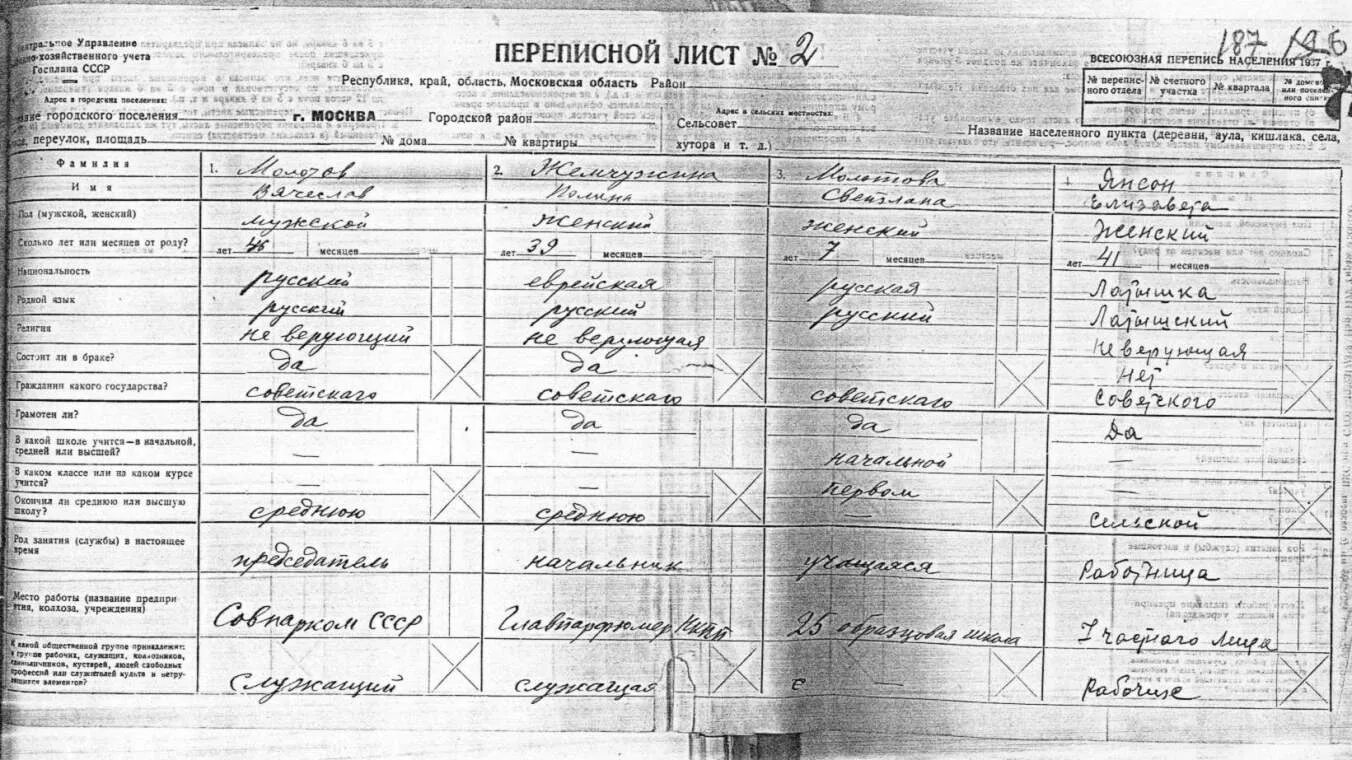 Центральное Управление
народно-хозяйственного учета
Госплана СССР
ПЕРЕПИСНОЙ ЛИСТ № 2
187
ВСЕСОЮЗНАЯ ПЕРЕПИСЬ НАСЕЛЕНИЯ 1937 г.
Республика, край, область, Московская область Район
№ перепис-ного отдела № счетного участка № квартала
Адрес в городских поселениях:
Адрес в сельских местностях:
городского поселения г. МОСКВА Городской район
Сельсовет
Название населенного пункта (деревни, аула, кишлака, села,
переулок, площадь № дома № квартиры
хутора и т. д.)
Фамилия 1. Молотов 2. Жемчужина 3. Молотова 4. Янсон
Имя Вячеслав Полина Светлана Елизавета
Пол (мужской, женский) мужской женский женский Женский
Сколько лет или месяцев от роду? лет 46 месяцев лет 39 месяцев лет 7 месяцев лет 41 месяцев
Национальность русский еврейская русская Латышка
Родной язык русский русский русский Латышский
Религия не верующий не верующая Неверующая
Состоит ли в браке? да да Нет
Гражданин какого государства? советскаго советскаго советскаго Советского
Грамотен ли? да да да Да
В какой школе учится—в начальной, средней или высшей? — — начальной —
В каком классе или на каком курсе учится? — — первом —
Окончил ли среднюю или высшую школу? среднюю среднюю — сельской
Род занятия (службы) в настоящее время председатель начальник учащаяся Работница
Место работы (название предприятия, колхоза, учреждения) Совнарком СССР Главпарфюмер НКПП 25 образцовая школа У частного лица
К какой общественной группе принадлежит: к группе рабочих, служащих, колхозников, единоличников, кустарей, людей свободных профессий или служителей культа и нетрудящихся элементов? служащий служащая — рабочих